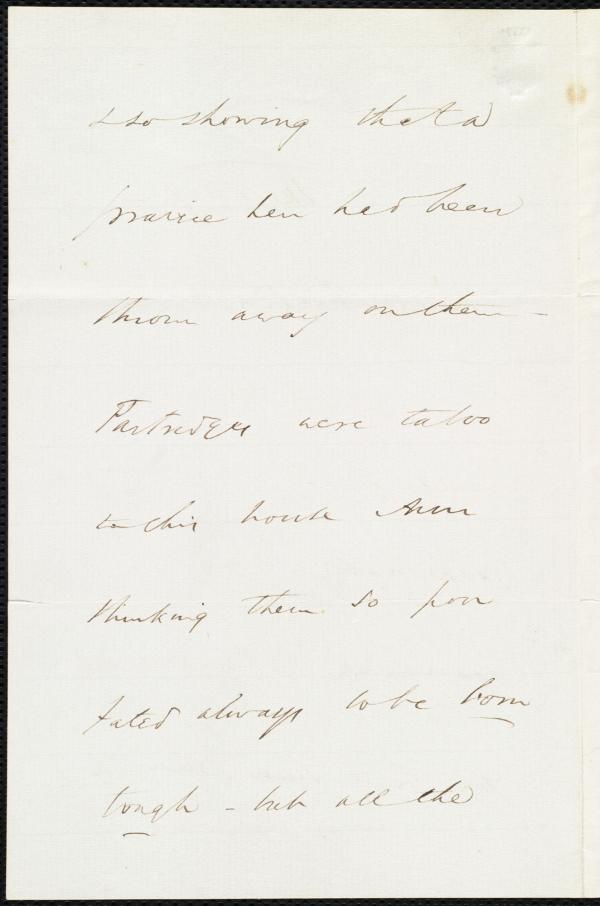 & so showing that a
prairie hen had been
thrown away on them —
Partredges were taboo
to this house Ann
thinking them so poor
fated always to be born
tough - but all the